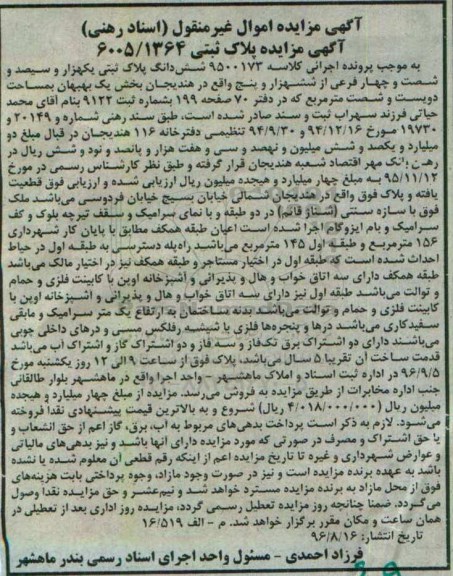 آگهی مزایده اموال غیرمنقول (اسناد رهنی)
آگهی مزایده پلاک ثبتی ۶۰۰۵/۱۳۶۴
به موجب پرونده اجرائی کلاسه ۹۵۰۰۱۷۳ شش‌دانگ پلاک ثبتی یکهزار و سیصد و
شصت و چهار فرعی از ششهزار و پنج واقع در هندیجان بخش یک بهبهان بمساحت
دویست و شصت مترمربع که در دفتر ۷۰ صفحه ۱۹۹ بشماره ثبت ۹۱۲۲ بنام آقای محمد
حیاتی فرزند سهراب ثبت و سند صادر شده است، طبق سند رهنی شماره و ۲۰۱۴۹ و
۱۹۷۳۰ مورخ ۹۴/۱۲/۱۶ و ۹۴/۹/۳۰ تنظیمی دفترخانه ۱۱۶ هندیجان در قبال مبلغ دو
میلیارد و یکصد و شش میلیون و نهصد و سی و هفت هزار و پانصد و نود و شش ریال در
رهن بانک مهر اقتصاد شعبه هندیجان قرار گرفته و طبق نظر کارشناس رسمی در مورخ
۹۵/۱۱/۱۲ به مبلغ چهار میلیارد و هیجده میلیون ریال ارزیابی شده و ارزیابی فوق قطعیت
یافته و پلاک فوق واقع در هندیجان شمالی خیابان بسیج خیابان فردوسی می‌باشد ملک
فوق با سازه سنتی (شناژ قائم) در دو طبقه و با نمای سرامیک و سقف تیرچه بلوک و کف
سرامیک و بام ایزوگام اجرا شده است اعیان طبقه همکف مطابق با پایان کار شهرداری
۱۵۶ مترمربع و طبقه اول ۱۴۵ مترمربع می‌باشد راه‌پله دسترسی به طبقه اول در حیاط
احداث شده است که طبقه اول در اختیار مستاجر و طبقه همکف نیز در اختیار مالک می‌باشد
طبقه همکف دارای سه اتاق خواب و هال و پذیرائی و آشپزخانه اوپن با کابینت فلزی و حمام
و توالت می‌باشد طبقه اول نیز دارای سه اتاق خواب و هال و پذیرائی و آشپزخانه اوپن با
کابینت فلزی و حمام و توالت می‌باشد بدنه ساختمان به ارتفاع یک متر سرامیک و مابقی
سفیدکاری می‌باشد درها و پنجره‌ها فلزی با شیشه رفلکس مسی و درهای داخلی چوبی
می‌باشند دارای دو اشتراک برق تک‌فاز و سه فاز و دو اشتراک گاز و اشتراک آب می‌باشد
قدمت ساخت آن تقریبا ۵ سال می‌باشد، پلاک فوق از ساعت ۹ الی ۱۲ روز یکشنبه مورخ
۹۶/۹/۵ در اداره ثبت اسناد و املاک ماهشهر - واحد اجرا واقع در ماهشهر بلوار طالقانی
جنب اداره مخابرات از طریق مزایده به فروش می‌رسد. مزایده از مبلغ چهار میلیارد و هیجده
میلیون ریال (۴/۰۱۸/۰۰۰/۰۰۰ ریال) شروع و به بالاترین قیمت پیشنهادی نقدا فروخته
می‌شود. لازم به ذکر است پرداخت بدهی‌های مربوط به آب، برق، گاز اعم از حق انشعاب و
یا حق اشتراک و مصرف در صورتی که مورد مزایده دارای آنها باشد و نیز بدهی‌های مالیاتی
و عوارض شهرداری و غیره تا تاریخ مزایده اعم از اینکه رقم قطعی آن معلوم شده یا نشده
باشد به عهده برنده مزایده است و نیز در صورت وجود مازاد، وجوه پرداختی بابت هزینه‌های
فوق از محل مازاد به برنده مزایده مسترد خواهد شد و نیم‌عشر و حق مزایده نقدا وصول
می‌گردد. ضمنا چنانچه روز مزایده تعطیل رسمی گردد، مزایده روز اداری بعد از تعطیلی در
همان ساعت و مکان مقرر برگزار خواهد شد. م - الف ۱۶/۵۱۹
تاریخ انتشار: ۹۶/۸/۱۶
فرزاد احمدی - مسئول واحد اجرای اسناد رسمی بندر ماهشهر